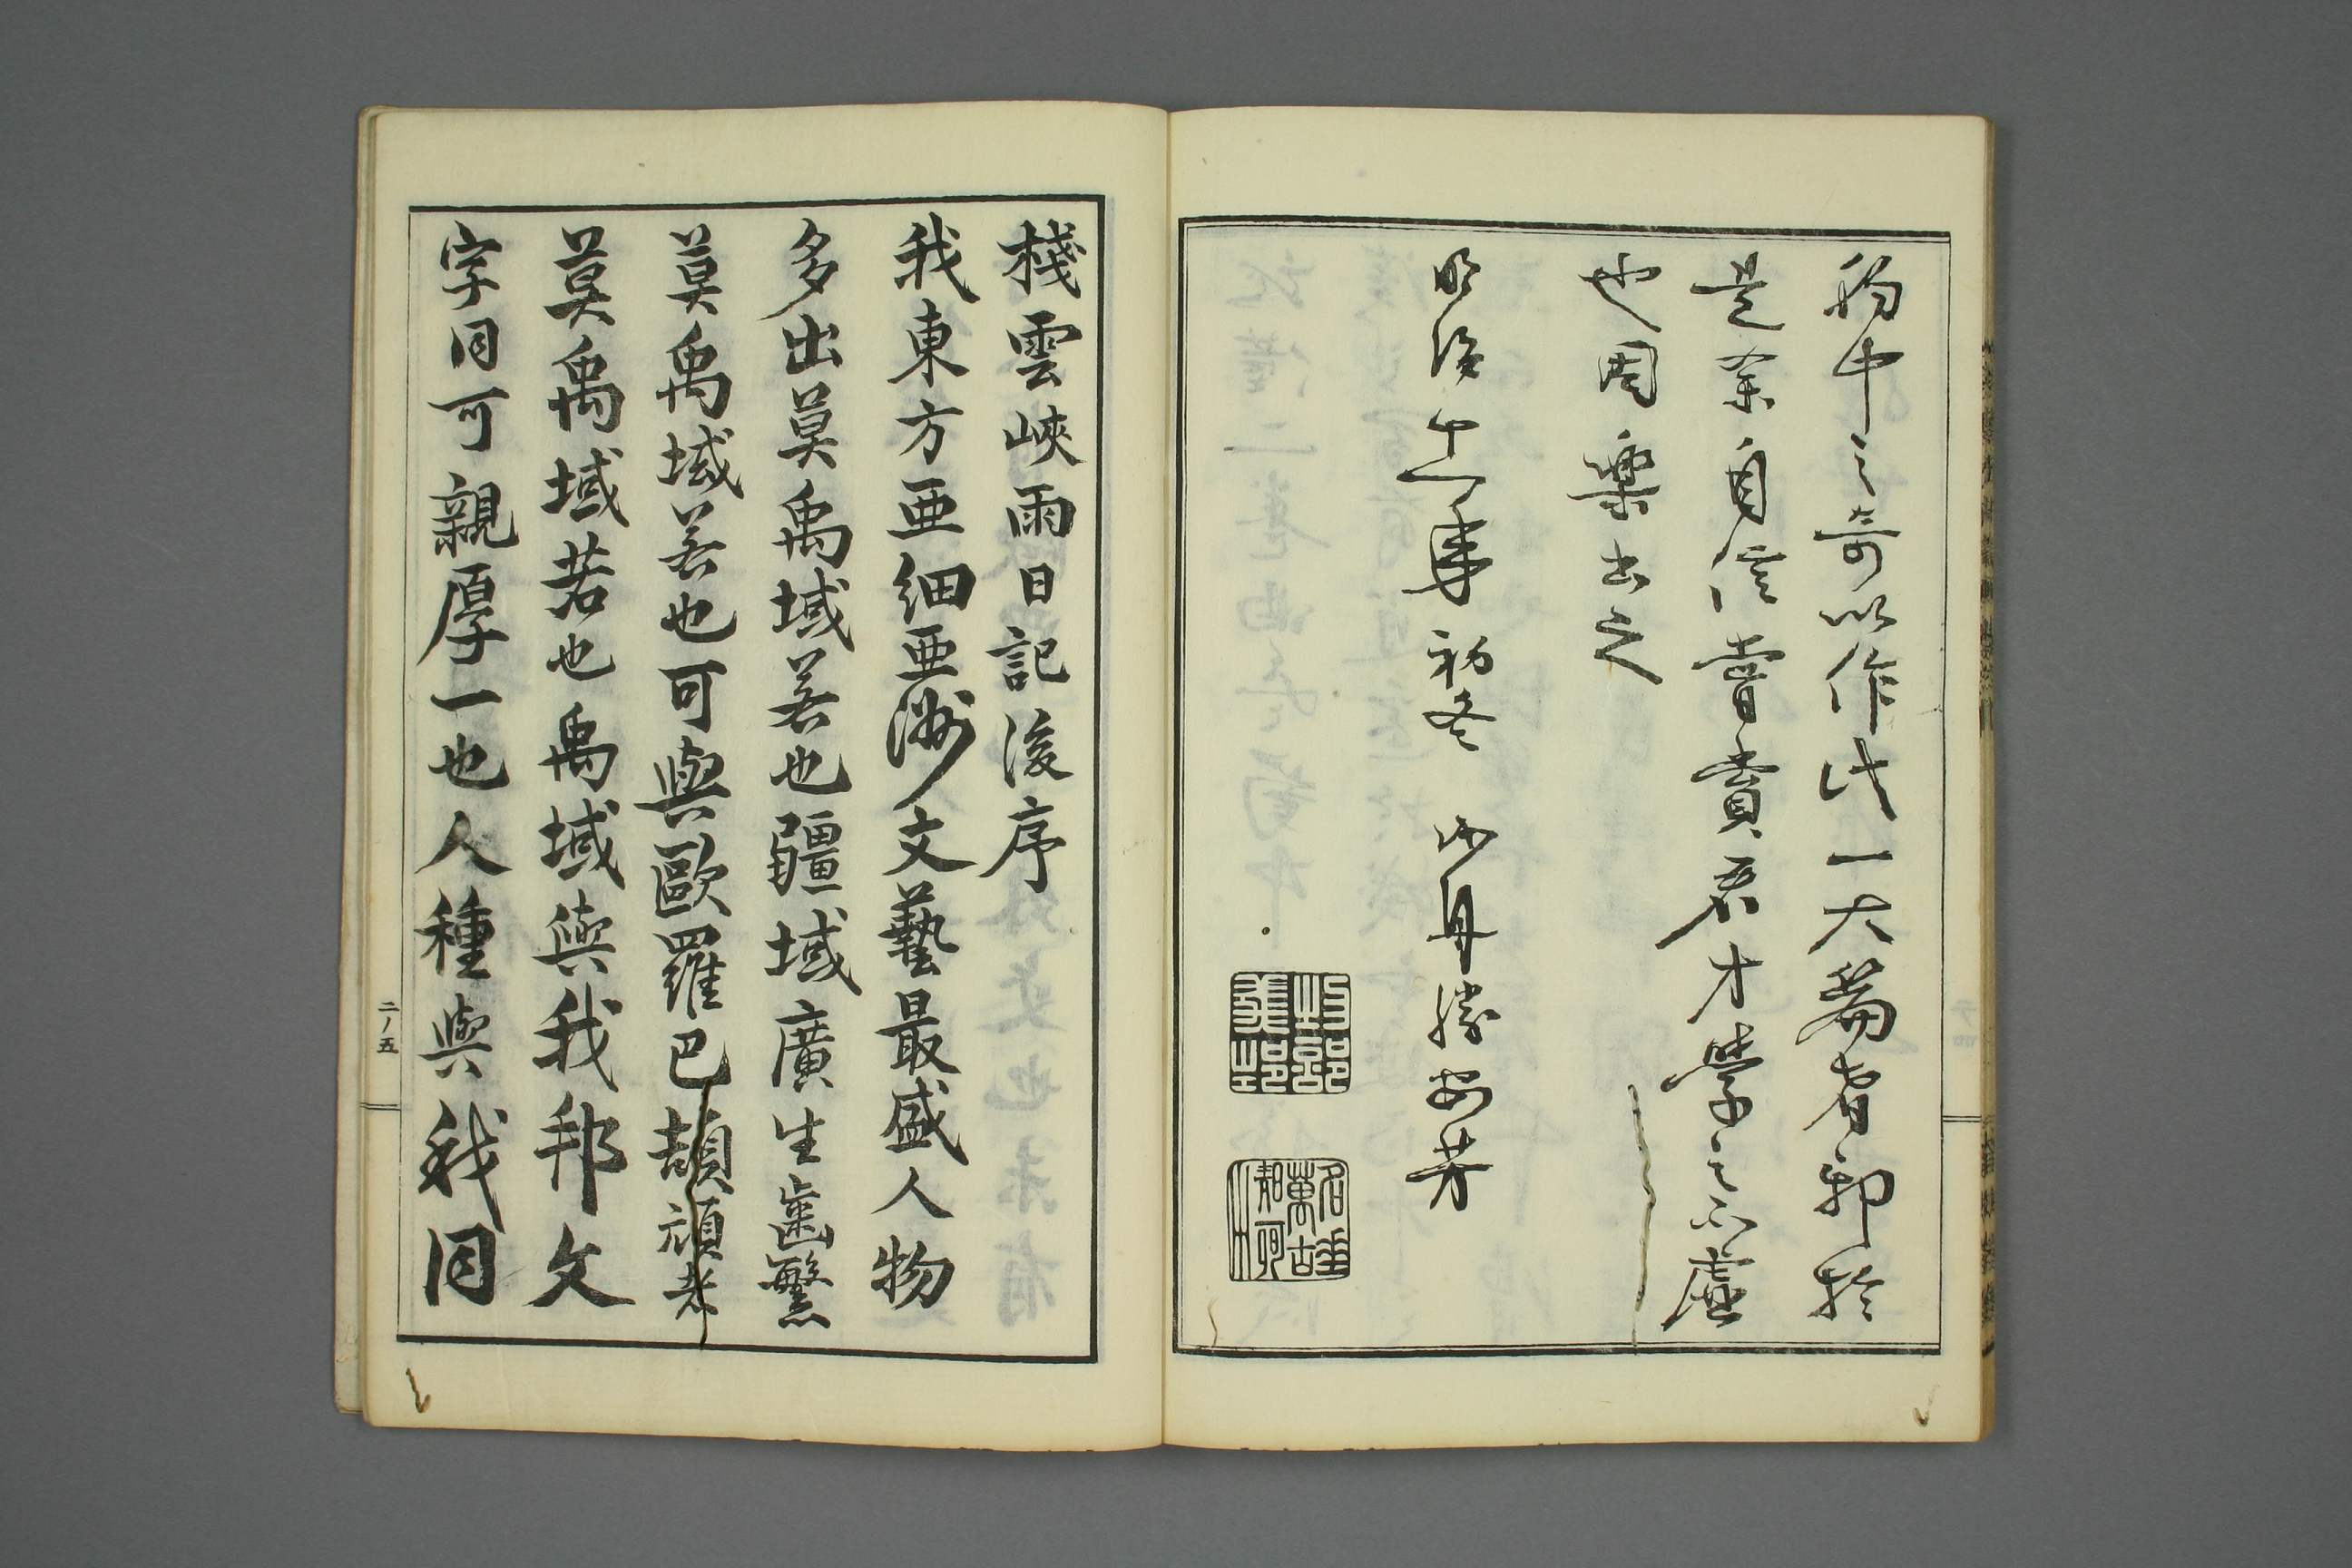 胸中之奇以作此一大篇者耶於
是余自信嘗賞君才學之不虛
也因樂書之
明治十一年初冬 海舟勝安芳
棧雲峽雨日記後序
我東方亜細亜洲文藝最盛人物
多出莫禹域若也疆域廣生齒繁
莫禹域若也可與歐羅巴頡頏者
莫禹域若也禹域與我邦文
字同可親厚一也人種與我同
二ノ五